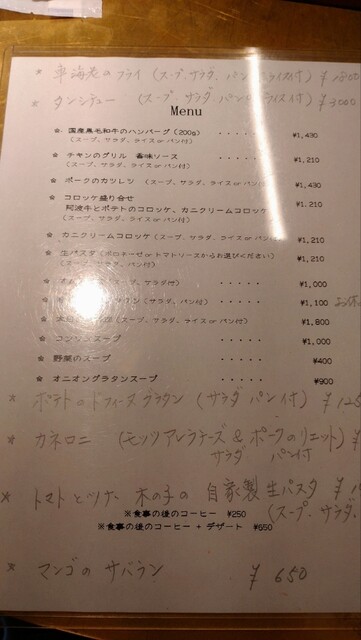 * 車海老のフライ (スープ、サラダ、パン or ライス付) ¥1800
* タンシチュー (スープ、サラダ、パン or ライス付) ¥3000
Menu
☆ 国産黒毛和牛のハンバーグ（200g） ・・・・・ ¥1,430
（スープ、サラダ、ライス or パン付）
☆ チキンのグリル 香味ソース ・・・・・ ¥1,210
（スープ、サラダ、ライス or パン付）
☆ ポークのカツレツ （スープ、サラダ、ライス or パン付） ¥1,430
☆ コロッケ盛り合せ ¥1,210
阿波牛とポテトのコロッケ、カニクリームコロッケ
（スープ、サラダ、ライス or パン付）
☆ カニクリームコロッケ（スープ、サラダ、ライス or パン付） ¥1,210
☆ 生パスタ（ボロネーゼ or トマトソースからお選びください） ¥1,210
（スープ、サラダ、パン付）
☆ サラダ付） ・・・・・ ¥1,000
☆ ウン（サラダ、パン付） ・・・・・ ¥1,100
☆ （スープ、サラダ、ライス or パン付） ¥1,800
☆ コンソメスープ ・・・・・ ¥1,000
☆ 野菜のスープ ・・・・・ ¥400
☆ オニオングラタンスープ ・・・・・ ¥900
* ポテトのドフィーヌグラタン (サラダ パン付) ¥125
* カネロニ (モッツァレラチーズ & ポークのリエット) ¥
サラダ パン付
* トマトとツナ、木の子の 自家製生パスタ ¥1
(スープ、サラダ、
※食事の後のコーヒー ¥250
※食事の後のコーヒー + デザート ¥650
* マンゴの サバラン ¥650